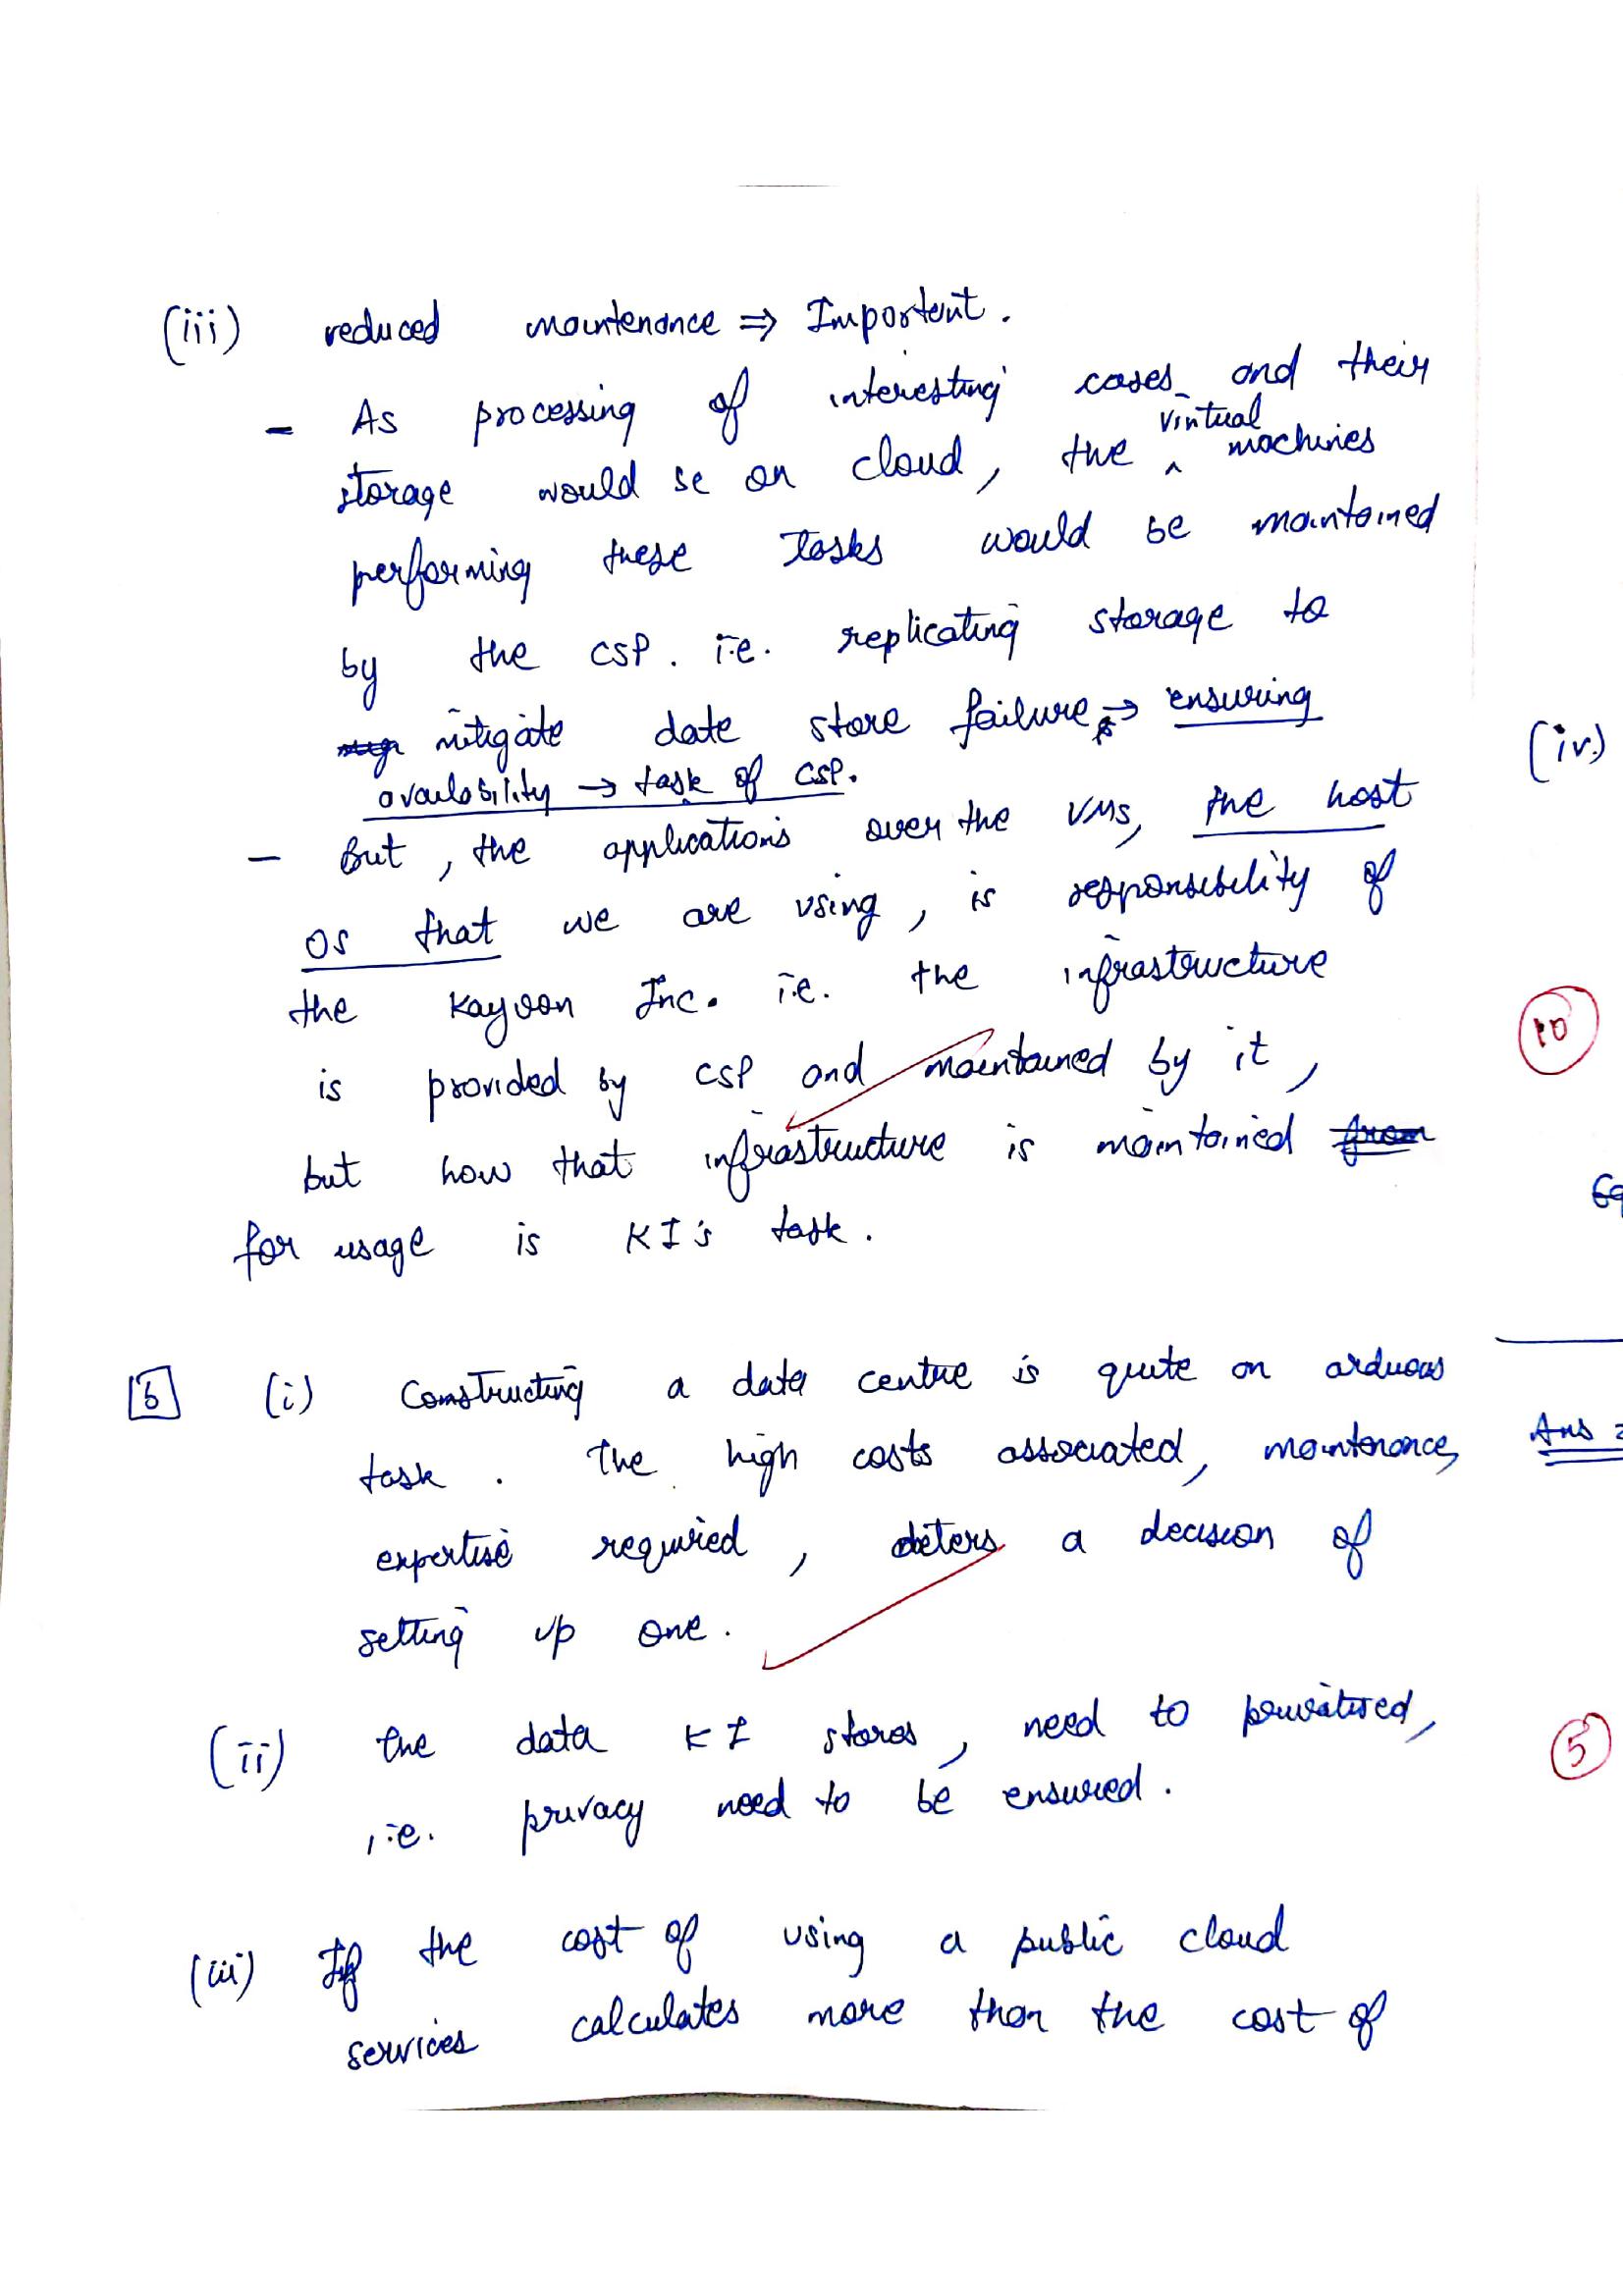 (iii) reduced maintenance ⇒ Important.
- As processing of interesting cases and their
storage would be on cloud, the ^ virtual machines
performing these tasks would be maintained
by the CSP. i.e. replicating storage to
mitigate data store failure → ensuring
availability → task of CSP.
- But, the applications over the VMs, the host
OS that we are using, is responsibility of
the Kayvon Inc. i.e. the infrastructure
is provided by CSP and maintained by it,
but how that infrastructure is maintained from
for usage is KI's task.
(iv.)
10
b (i) Constructing a data centre is quite an arduous
task. The high costs associated, maintenance,
expertise required, deters a decision of
setting up one.
Ans
(ii) the data KI stores, need to privatised,
i.e. privacy need to be ensured.
5
(iii) If the cost of using a public cloud
services calculates more than the cost of